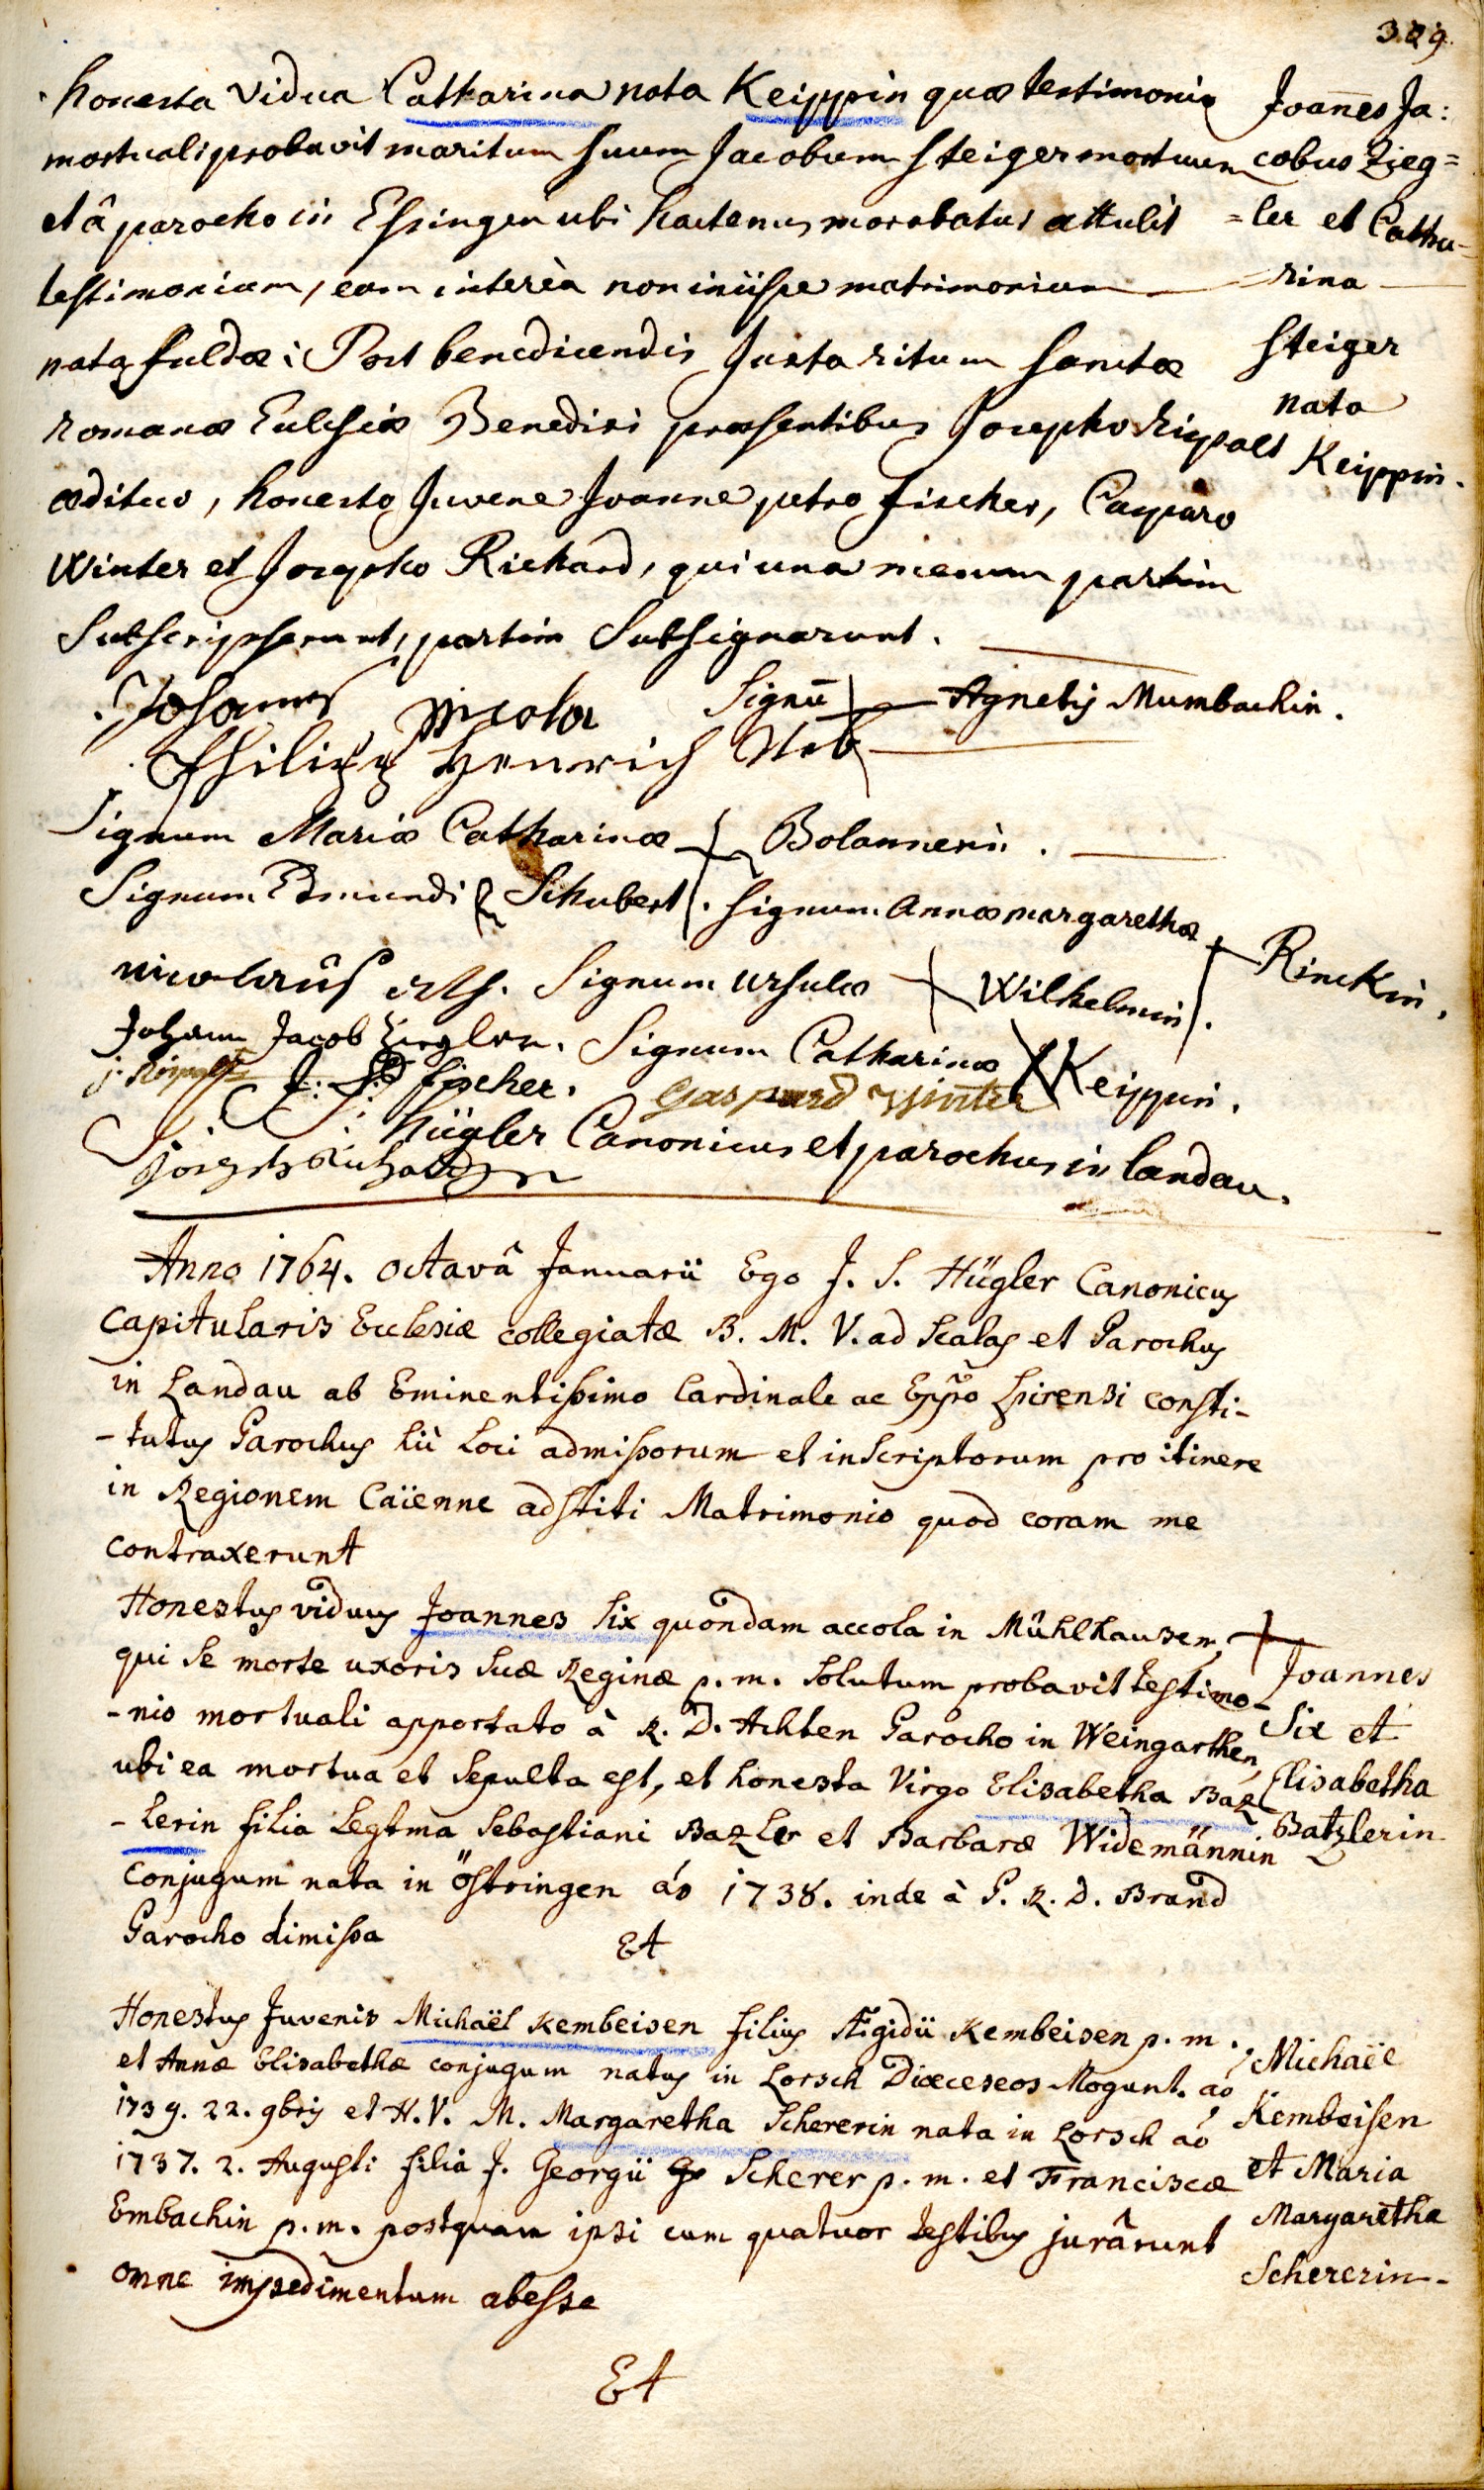 309.
honesta Vidua Catharina nata Keippin quæ testimonio
mortuali probavit maritum suum Jacobum Steiger mortuum
et â parocho in Essingen ubi hactenus morabatur attulit
testimonium, eam intereà non iniisse matrimonium
nata fuldæ: Post benedicendis Juxta ritum Sanctæ
romanæ Ecclesiæ Benedixi præsentibus Josepho Ripalt
ædituo, honesto Juvene Joanne petro fischer, Casparo
Winter et Josepho Richard, qui una mecum partim
Subscripserunt, partim Subsignarunt.
Joannes Ja:
cobus Zieg=
=ler et Catha=
=rina
Steiger
nata
Keippin.
Johannes Nicola Signū Agnetis Mumbachin.
Philipp Henrich
Signum Mariæ Catharinæ Bolannerin.
Signum Edmundi Schubert. Signum Annæ margarethæ Rinckin.
nicolaus Signum Ursulæ Wilhelmin.
Johann Jacob Ziegler. Signum Catharinæ Keippin.
j. Ripalt J. P. fischer. Gaspard Winter
J. S. Hügler Canonicus et parochus in landau.
Joseph Richard
Anno 1764. octavâ Januarii Ego J. S. Hügler Canonicus
Capitularis Ecclesiæ collegiatæ B. M. V. ad Scalas et Parochus
in Landau ab Eminentissimo Cardinale ac Eppo Spirensi consti-
-tutus Parochus hic Loci admissorum et inscriptorum pro itinere
in Regionem Caïenne adstiti Matrimonio quod coram me
contraxerunt
Honestus viduus Joannes Six quondam accola in Mühlhausen,
qui se morte uxoris suæ Reginæ p. m. solutum probavit testimo-
-nio mortuali apportato à R. D. Achten Parocho in Weingarthen,
ubi ea mortua et sepulta est, et honesta Virgo Elisabetha Baz
-lerin filia Legtma Sebastiani Bazler et Barbaræ Widemännin
conjugum nata in Östringen aō 1738. inde à P. R. D. Brand
Parocho dimissa
Joannes
Six et
Elisabetha
Batzlerin
Et
Honestus Juvenis Michaël Kembeisen filius Ægidii Kembeisen p. m.
et Annæ Elisabethæ conjugum natus in Lorsch Diœceseos Mogunt. aō
1739. 22. 9bris et H. V. M. Margaretha Schererin nata in Lorsch aō
1737. 2. Augusti filia J. Georgii Scherer p. m. et Franciscæ
Embachin p. m. postquam ipsi cum quatuor testibus jurârunt
omne impedimentum abesse
Michaël
Kembeisen
et Maria
Margaretha
Schererin-
Et